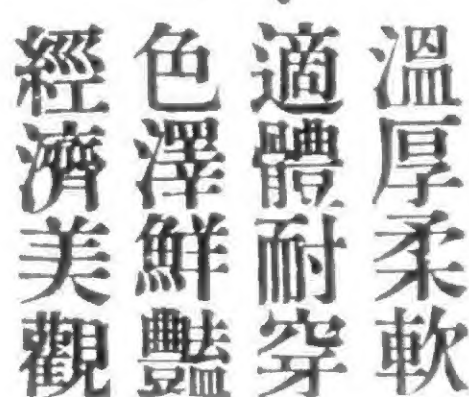 溫厚柔軟
適體耐穿
色澤鮮豔
經濟美觀